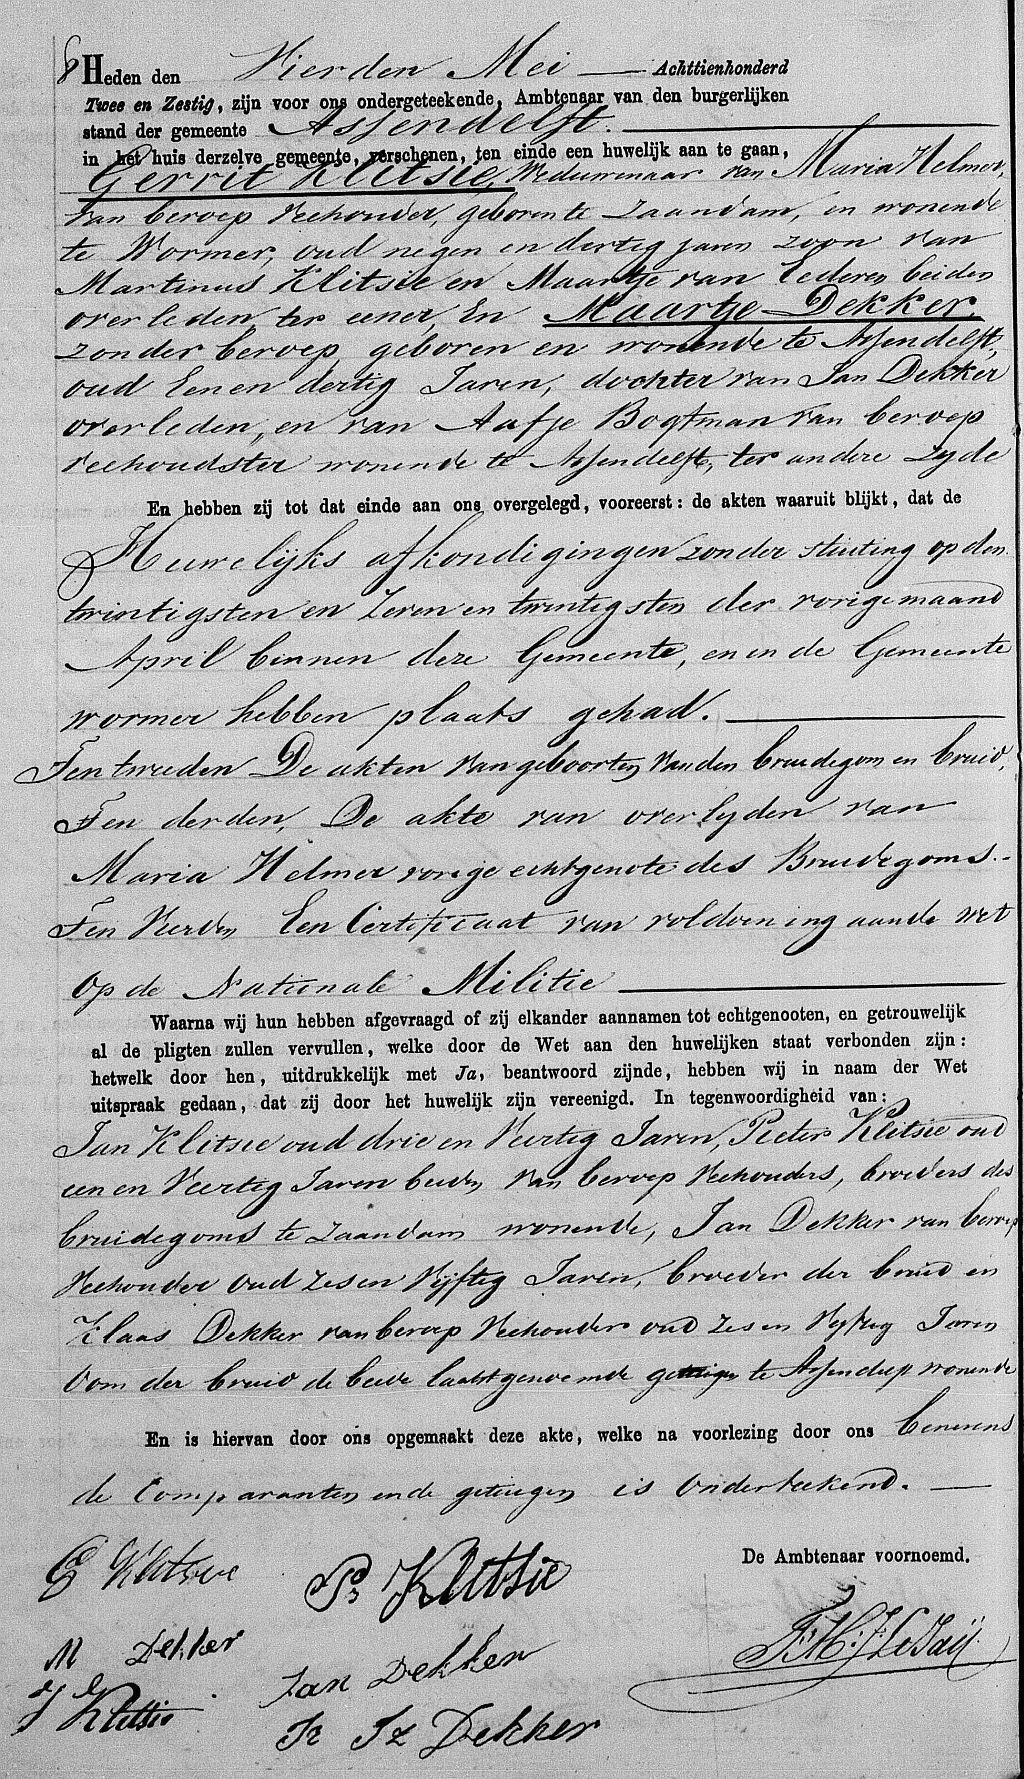 8 Heden den Vierden Mei — Achttienhonderd
Twee en Zestig, zijn voor ons ondergeteekende, Ambtenaar van den burgerlijken
stand der gemeente Assendelft.
in het huis derzelve gemeente, verschenen, ten einde een huwelijk aan te gaan,
Gerrit Klitsie, Weduwenaar van Maria Helmer,
van beroep Veehouder, geboren te Zaandam, en wonende
te Wormer, oud negen en dertig jaren zoon van
Martinus Klitsie en Maartje van Lederen beiden
overleden, ter eener, En Maartje Dekker,
zonder beroep, geboren en wonende te Assendelft,
oud Een en dertig Jaren, dochter van Jan Dekker
overleden, en van Aafje Bogtman van beroep
veehoudster wonende te Assendelft, ter andere zyde
En hebben zij tot dat einde aan ons overgelegd, vooreerst: de akten waaruit blijkt, dat de
Huwelijks afkondigingen zonder stuiting op den
twintigsten en zeven en twintigsten der vorige maand
April binnen deze Gemeente, en in de Gemeente
wormer hebben plaats gehad.
Ten tweeden De akten van geboorten van den bruidegom en bruid,
Ten derden, De akte van overlyden van
Maria Helmer vorige echtgenote des Bruidegoms.-
Ten Vierden Een Certificaat van voldoening aan de wet
op de Nationale Militie
Waarna wij hun hebben afgevraagd of zij elkander aannamen tot echtgenooten, en getrouwelijk
al de pligten zullen vervullen, welke door de Wet aan den huwelijken staat verbonden zijn:
hetwelk door hen, uitdrukkelijk met Ja, beantwoord zijnde, hebben wij in naam der Wet
uitspraak gedaan, dat zij door het huwelijk zijn vereenigd. In tegenwoordigheid van:
Jan Klitsie oud drie en Veertig Jaren, Pieter Klitsie oud
een en Veertig Jaren beiden van beroep Veehouders, broeders des
bruidegoms te Zaandam wonende, Jan Dekker van beroep
Veehouder oud zes en Vijftig Jaren, broeder der bruid en
Klaas Dekker van beroep Veehouder oud zes en Vyftig Jaren
Oom der bruid de beide laatstgenoemde getuigen te Assendelft wonende
En is hiervan door ons opgemaakt deze akte, welke na voorlezing door ons benevens
de Comparanten en de getuigen is Onderteekend. —
G Klitsie P. Klitsie De Ambtenaar voornoemd.
M Dekker Jan Dekker
Klitsie Dekker